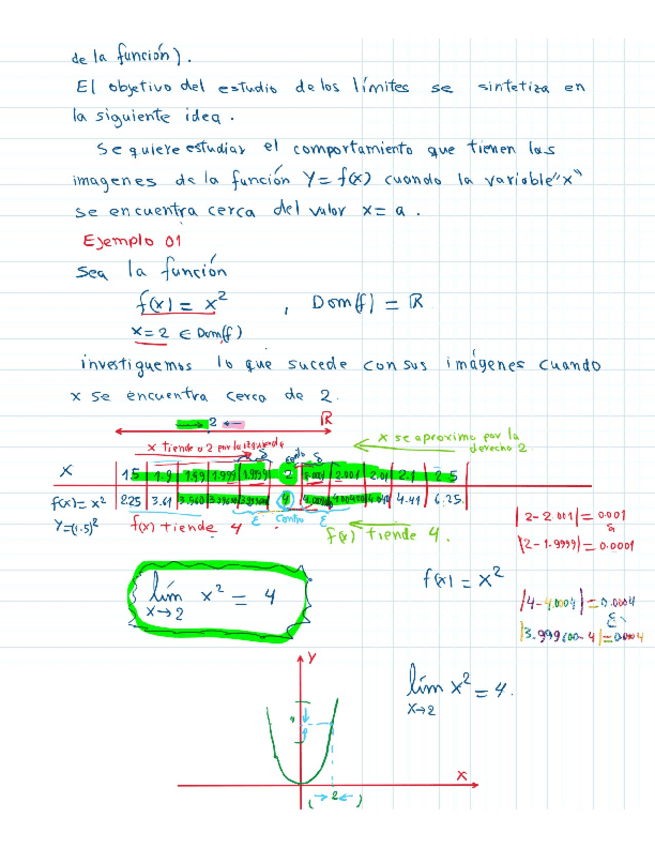 de la función).
El objetivo del estudio de los límites se sintetiza en
la siguiente idea.
Se quiere estudiar el comportamiento que tienen las
imagenes de la función Y = f(x) cuando la variable "x"
se encuentra cerca del valor x = a.
Ejemplo 01
Sea la función
f(x) = x² , Dom(f) = ℝ
x = 2 ∈ Dom(f)
investiguemos lo que sucede con sus imágenes cuando
x se encuentra cerca de 2.
→ 2 ← ℝ
x tiende a 2 por la izquierda
x se aproxima por la
derecha 2
δ centro δ
x 1.5 1.9 1.99 1.999 2 2.001 2.01 2.1 2.5
f(x) = x² 2.25 3.61 4 4.41 6.25
Y = (1.5)²
f(x) tiende 4 ε centro ε f(x) tiende 4.
|2-2.001| = 0.001
δ
|2-1.9999| = 0.0001
lím x² = 4
x→2
f(x) = x²
|4-4.0004| = 0.0004
ε
lím x² = 4.
x→2
Y
4
x
(→ 2 ←)